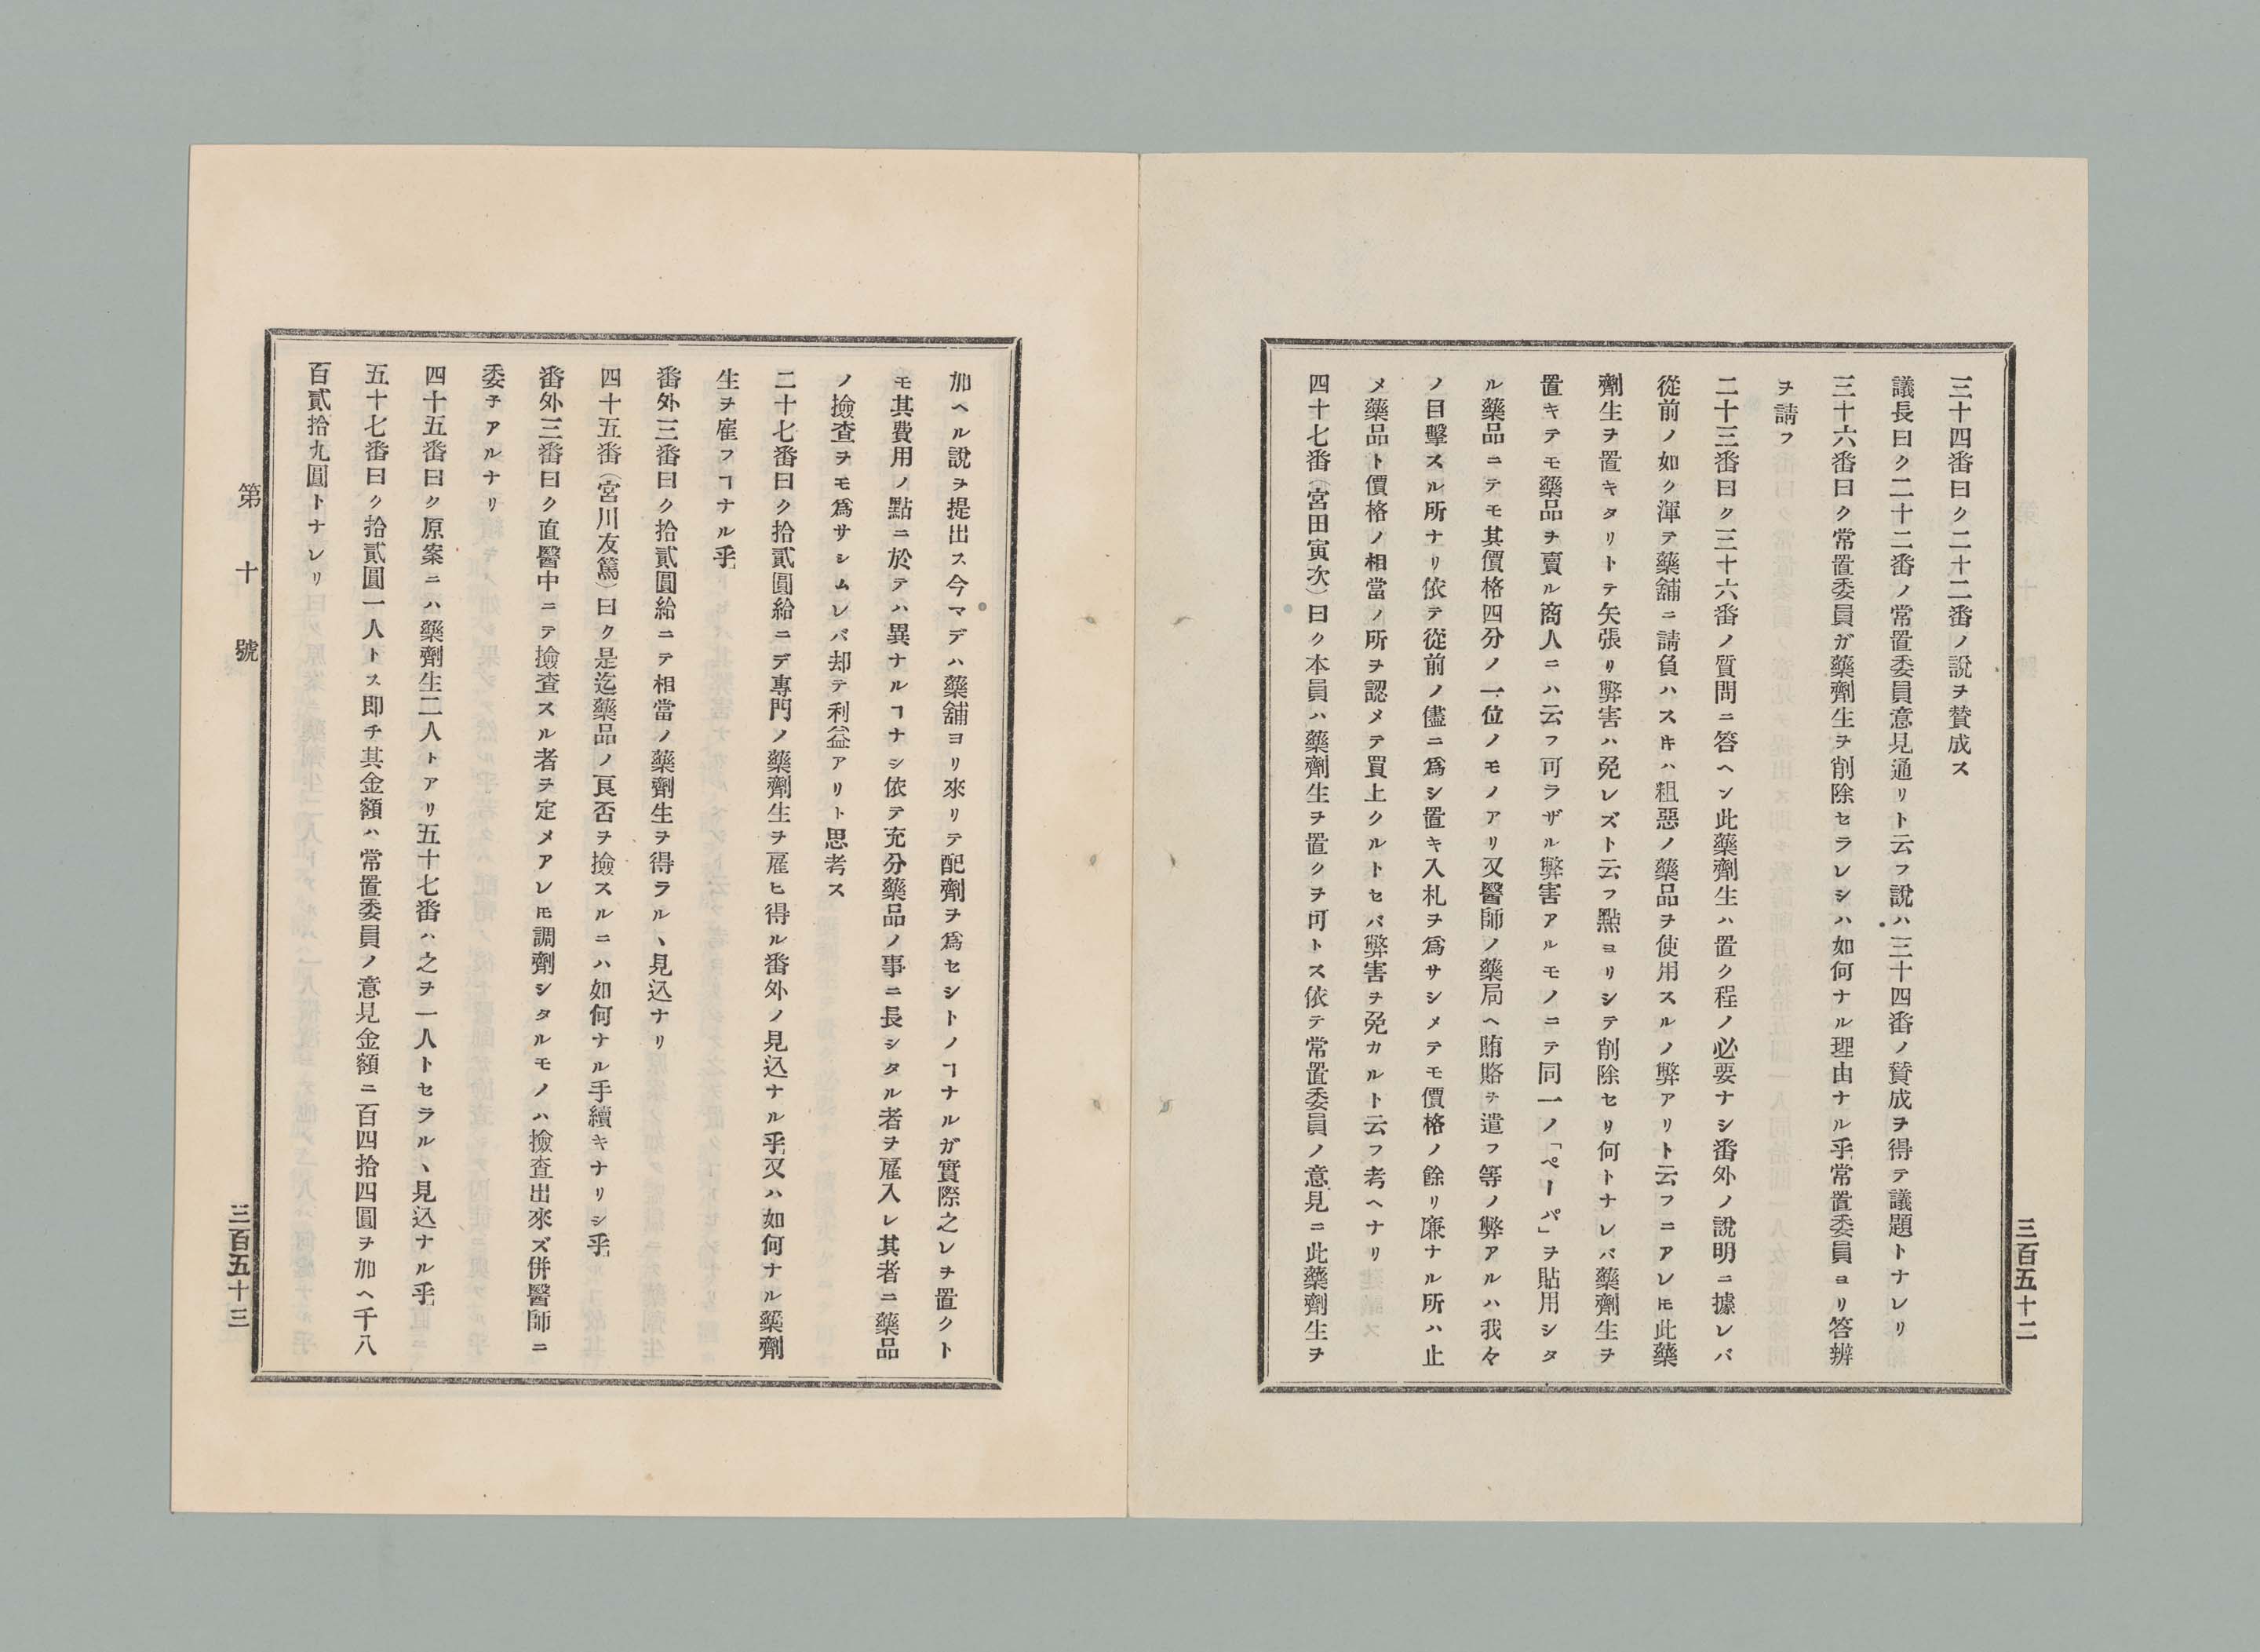 三十四番曰ク二十二番ノ說ヲ賛成ス
議長曰ク二十二番ノ常置委員意見通リト云フ說ハ三十四番ノ賛成ヲ得テ議題トナレリ
三十六番曰ク常置委員ガ藥劑生ヲ削除セラレシハ如何ナル理由ナル乎常置委員ヨリ答辨
ヲ請フ
二十三番曰ク三十六番ノ質問ニ答ヘン此藥劑生ハ置ク程ノ必要ナシ番外ノ說明ニ據レバ
從前ノ如ク渾テ藥舖ニ請負ハスキハ粗惡ノ藥品ヲ使用スルノ弊アリト云フニアレ𪜈此藥
劑生ヲ置キタリトテ矢張リ弊害ハ免レズト云フ點ヨリシテ削除セリ何トナレバ藥劑生ヲ
置キテモ藥品ヲ賣ル商人ニハ云フ可ラザル弊害アルモノニテ同一ノ「ペーパ」ヲ貼用シタ
ル藥品ニテモ其價格四分ノ一位ノモノアリ又醫師ノ藥局ヘ賄賂ヲ遣フ等ノ弊アルハ我々
ノ目擊スル所ナリ依テ從前ノ儘ニ爲シ置キ入札ヲ爲サシメテモ價格ノ餘リ廉ナル所ハ止
メ藥品ト價格ノ相當ノ所ヲ認メテ買上クルトセバ弊害ヲ免カルト云フ考ヘナリ
四十七番(宮田寅次)曰ク本員ハ藥劑生ヲ置クヲ可トス依テ常置委員ノ意見ニ此藥劑生ヲ
三百五十二
加ヘル說ヲ提出ス今マデハ藥舖ヨリ來リテ配劑ヲ爲セシトノヿナルガ實際之レヲ置クト
モ其費用ノ點ニ於テハ異ナルヿナシ依テ充分藥品ノ事ニ長シタル者ヲ雇入レ其者ニ藥品
ノ撿查ヲモ爲サシムレバ却テ利益アリト思考ス
二十七番曰ク拾貳圓給ニテ專門ノ藥劑生ヲ雇ヒ得ル番外ノ見込ナル乎又ハ如何ナル藥劑
生ヲ雇フヿナル乎
番外三番曰ク拾貳圓給ニテ相當ノ藥劑生ヲ得ラルヽ見込ナリ
四十五番(宮川友篤)曰ク是迄藥品ノ良否ヲ撿スルニハ如何ナル手續キナリシ乎
番外三番曰ク直醫中ニテ撿查スル者ヲ定メアレ𪜈調劑シタルモノハ撿查出來ズ併醫師ニ
委子アルナリ
四十五番曰ク原案ニハ藥劑生二人トアリ五十七番ハ之ヲ一人トセラルヽ見込ナル乎
五十七番曰ク拾貳圓一人トス即チ其金額ハ常置委員ノ意見金額ニ百四拾四圓ヲ加ヘ千八
百貳拾九圓トナレリ
第十號
三百五十三